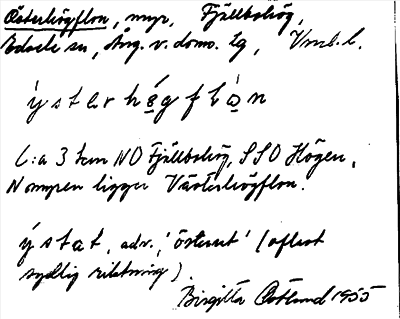 Österhögflon, myr, Fjällbohög,
Edsele sn, Ång. v. doms. lg, Vmb. l.
ýstar hø̣g flọ̀n
C:a 3 km NO Fjällbohög, SSO Högen.
N om myren ligger Västerhögflon.
ýstat, adv., 'österut' (oftast
sydlig riktning).
Birgitta Östlund 1955